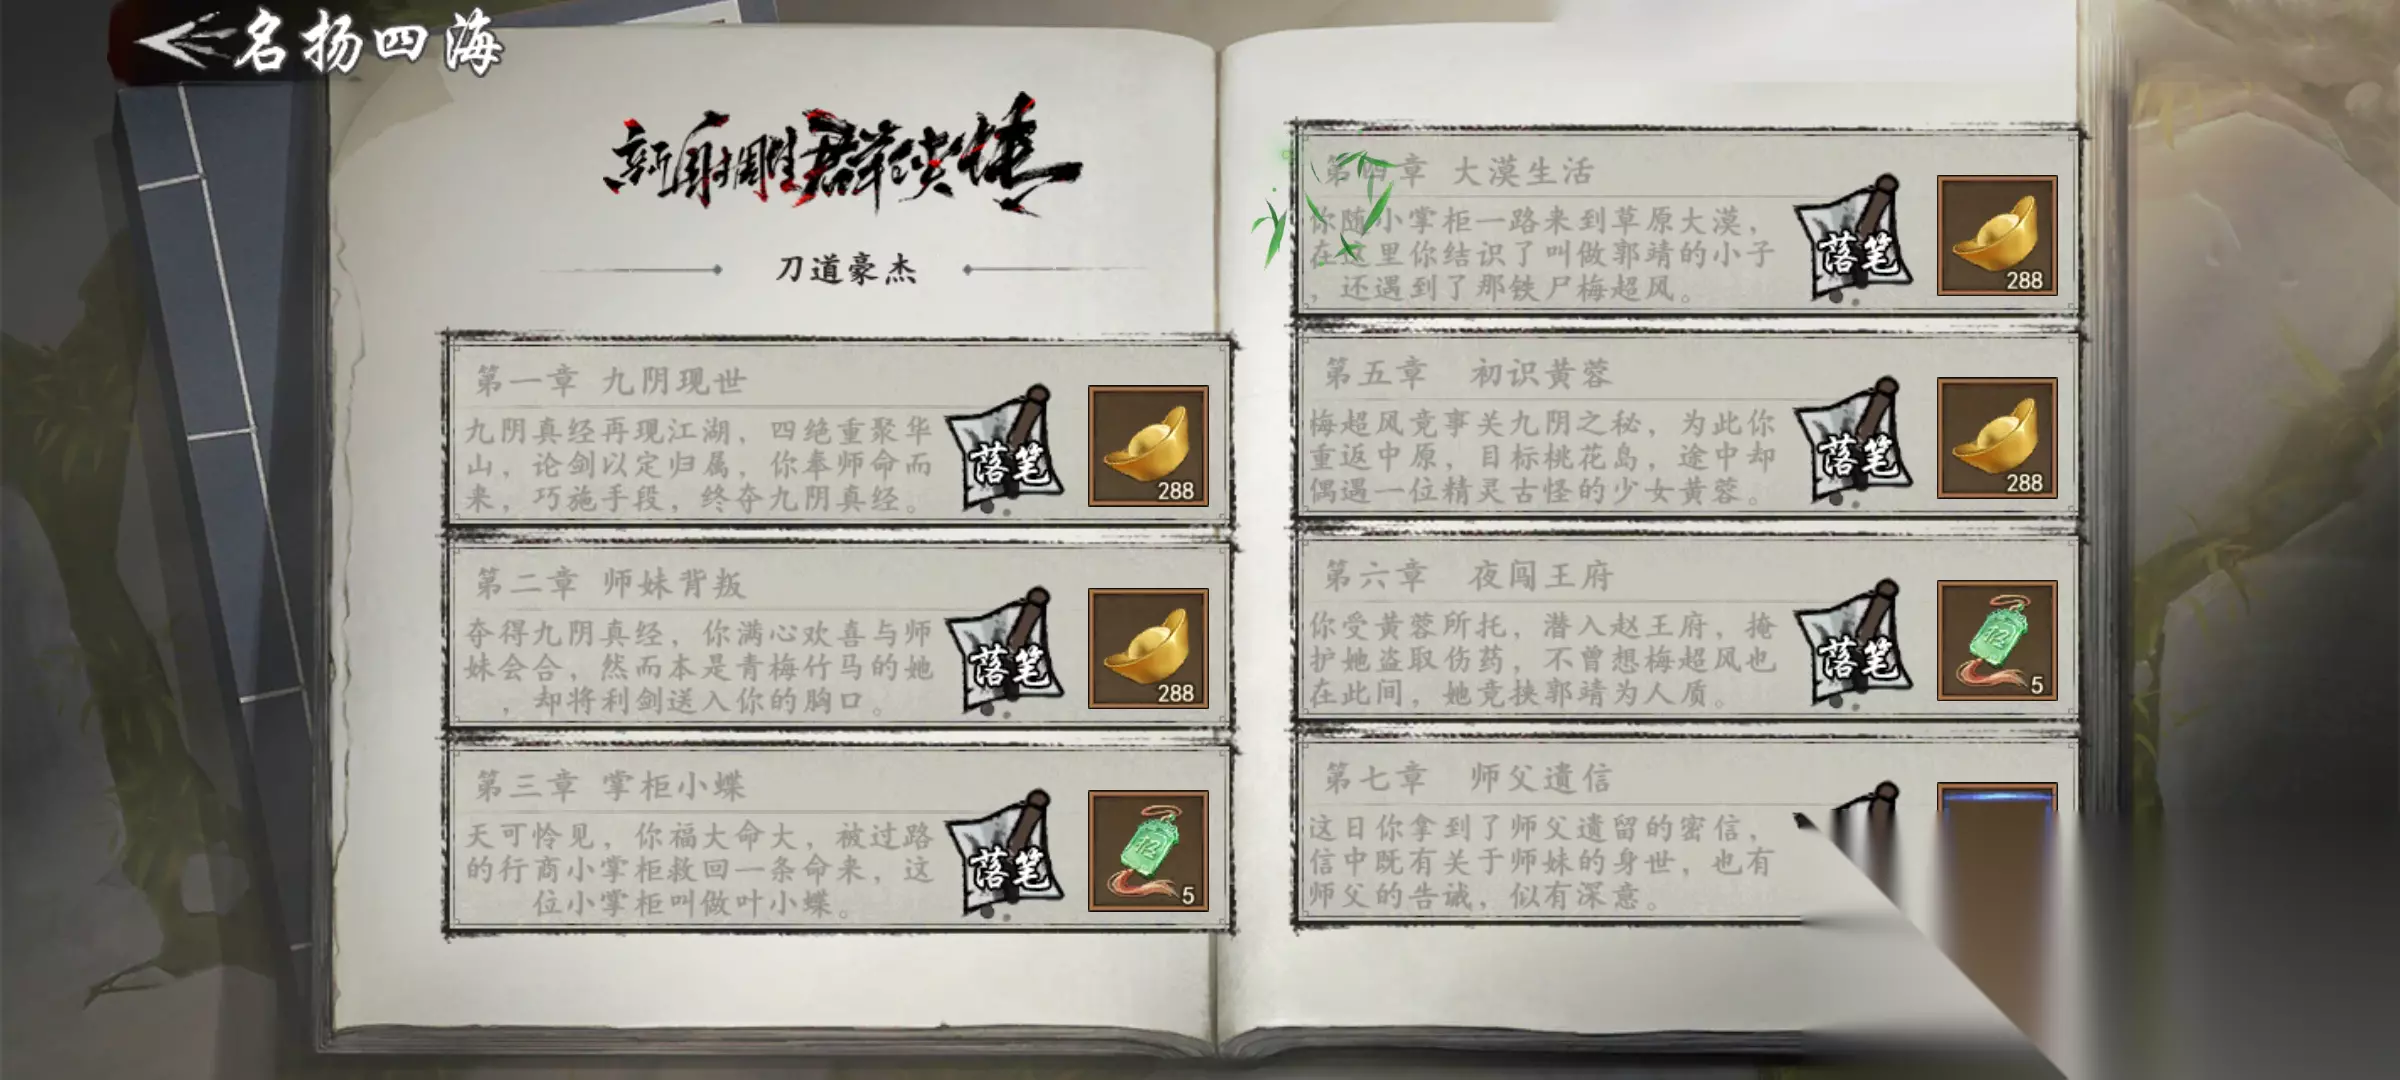 名扬四海
新射雕群侠传
刀道豪杰
第一章 九阴现世
九阴真经再现江湖，四绝重聚华
山，论剑以定归属，你奉师命而
来，巧施手段，终夺九阴真经。
落笔
288
第二章 师妹背叛
夺得九阴真经，你满心欢喜与师
妹会合，然而本是青梅竹马的她
，却将利剑送入你的胸口。
落笔
288
第三章 掌柜小蝶
天可怜见，你福大命大，被过路
的行商小掌柜救回一条命来，这
位小掌柜叫做叶小蝶。
落笔
5
第四章 大漠生活
你随小掌柜一路来到草原大漠，
在这里你结识了叫做郭靖的小子
，还遇到了那铁尸梅超风。
落笔
288
第五章 初识黄蓉
梅超风竟事关九阴之秘，为此你
重返中原，目标桃花岛，途中却
偶遇一位精灵古怪的少女黄蓉。
落笔
288
第六章 夜闯王府
你受黄蓉所托，潜入赵王府，掩
护她盗取伤药，不曾想梅超风也
在此间，她竟挟郭靖为人质。
落笔
5
第七章 师父遗信
这日你拿到了师父遗留的密信，
信中既有关于师妹的身世，也有
师父的告诫，似有深意。